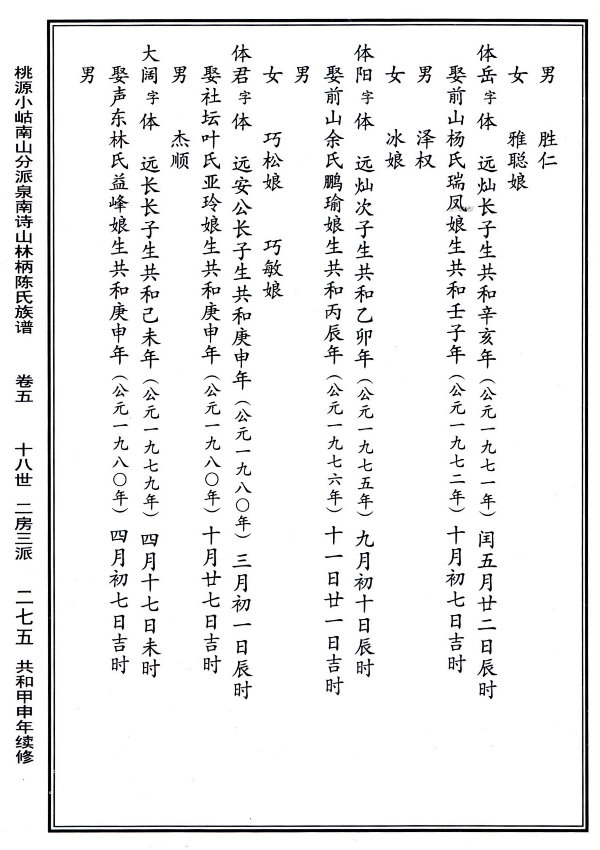 男　胜仁
女　雅聪娘
体岳字体　远灿长子生共和辛亥年（公元一九七一年）闰五月廿二日辰时
娶前山杨氏瑞凤娘生共和壬子年（公元一九七二年）十月初七日吉时
男　泽权
女　冰娘
体阳字体　远灿次子生共和乙卯年（公元一九七五年）九月初十日辰时
娶前山余氏鹏瑜娘生共和丙辰年（公元一九七六年）十一日廿一日吉时
男
女　巧松娘　巧敏娘
体君字体　远安公长子生共和庚申年（公元一九八〇年）三月初一日辰时
娶社坛叶氏亚玲娘生共和庚申年（公元一九八〇年）十月廿七日吉时
男　杰顺
大阔字体　远长长子生共和己未年（公元一九七九年）四月十七日未时
娶声东林氏益峰娘生共和庚申年（公元一九八〇年）四月初七日吉时
男
桃源小岵南山分派泉南诗山林柄陈氏族谱　卷五　十八世　二房三派　二七五　共和甲申年续修